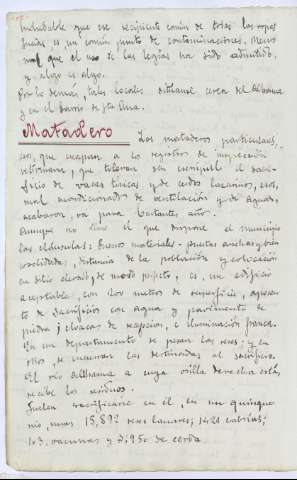 indudable que ese recipiente común de todas las ropas
sucias es un común punto de contaminaciones. Menos
mal que el uso de las lejías ha sido admitido,
y algo es algo.
Por lo demás, tales locales sitúanse cerca del Alhama
y en el barrio de Sta Ana.
Matadero Los mataderos particulares,
que escapan a los registros de inspección
veterinaria, y que toleran sin escrúpulo el sacri-
ficio de reses y de cerdos
mal acondicionados de ventilación y de aguas,
acabaron, va para bastantes años.
Aunque no tiene el que dispone el municipio
las cláusulas: buenos materiales - puertas anchas y bien
, distancia de la población y colocación
en sitio elevado, de modo perfecto, es, un edificio
aceptable, con 200 metros de superficie, aposen-
to de sacrificios con agua y pavimento de
piedra; cloacas de negocion, e iluminación franca.
En un departamento se pesan las reses; y en
otros, se encierran las destinadas al sacrificio.
El río Alhama a cuya orilla derecha está,
recibe los residuos.
Suelen sacrificarse en él, en un quinque-
nio, unas 15,892 reses lanares; 1421 cabrías;
103 vacunas y 2,950 de cerda.